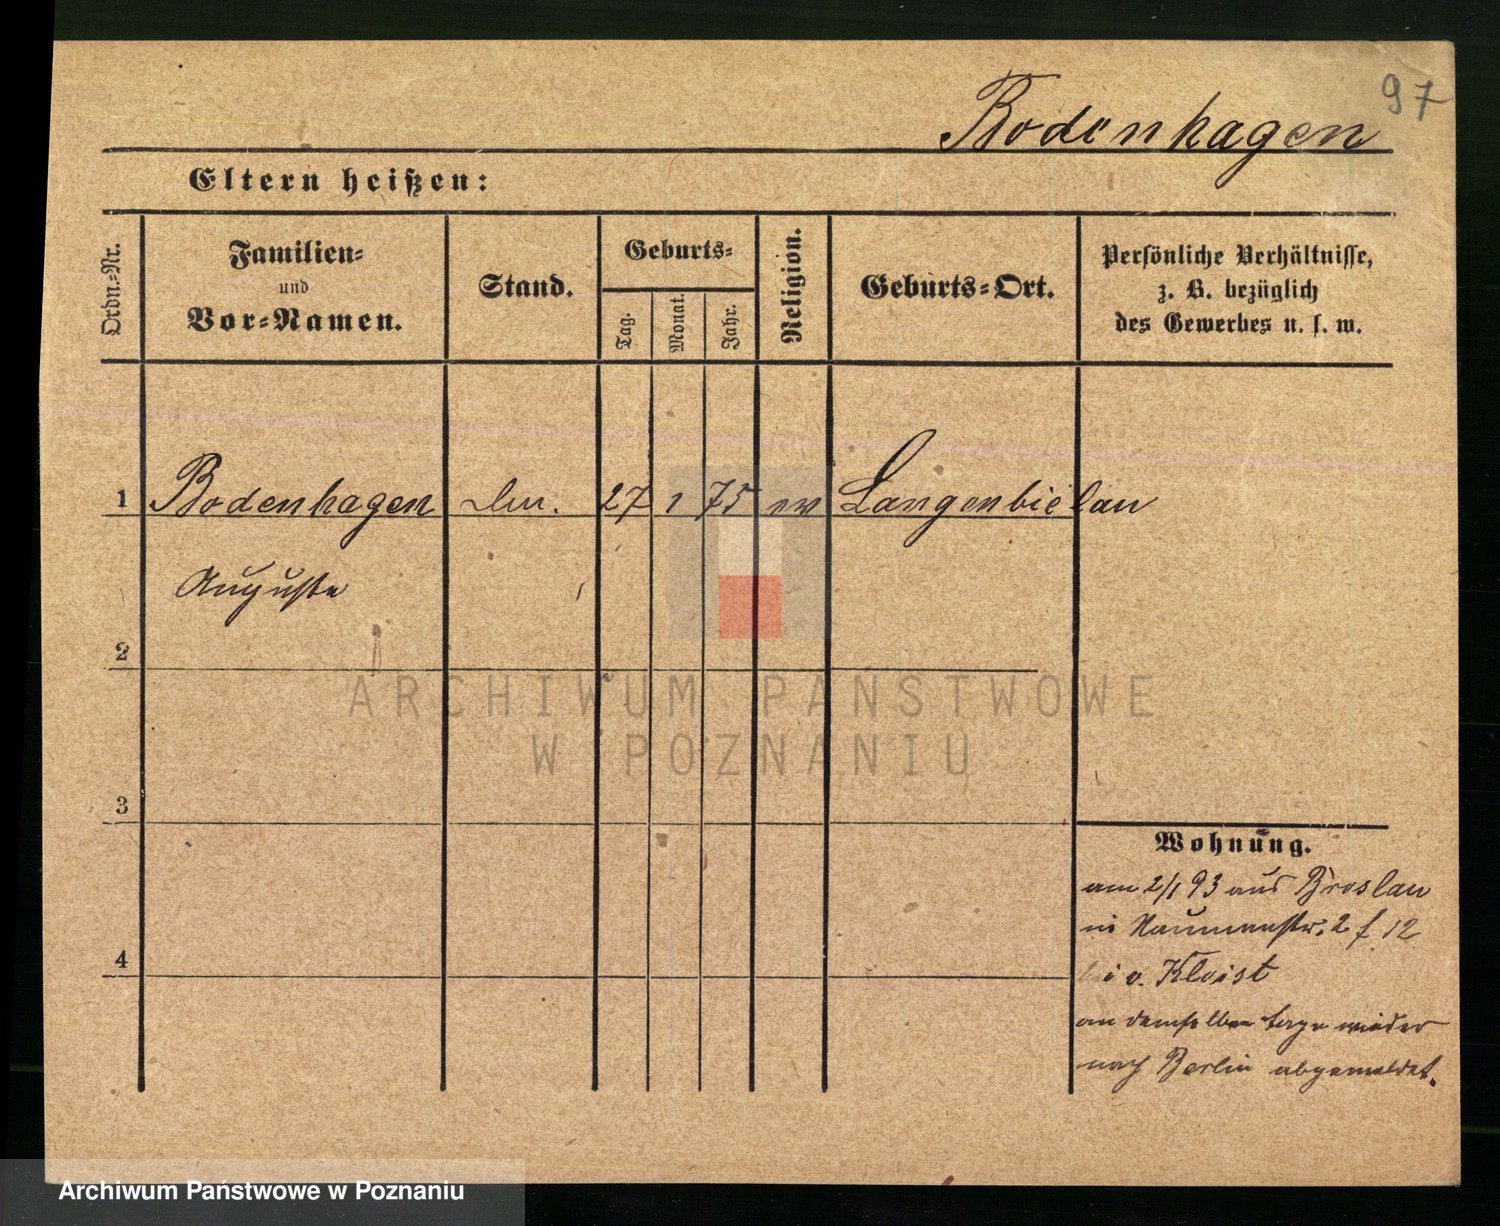 97
Bodenhagen
Eltern heißen:
Ordn.=Nr.
Familien=
und
Vor=Namen.
Stand.
Geburts=
Tag.
Monat.
Jahr.
Religion.
Geburts=Ort.
Persönliche Verhältnisse,
z. B. bezüglich
des Gewerbes u. s. w.
1 Bodenhagen 27 1 75 ev Langenbielau
Auguste
2
ARCHIWUM PAŃSTWOWE
W POZNANIU
3
4
Wohnung.
am 2/1 93 aus Breslau
in Naumannstr. 2 f 12
bei v. Kleist
an demselben Tage wieder
nach Berlin abgemeldet.
Archiwum Państwowe w Poznaniu